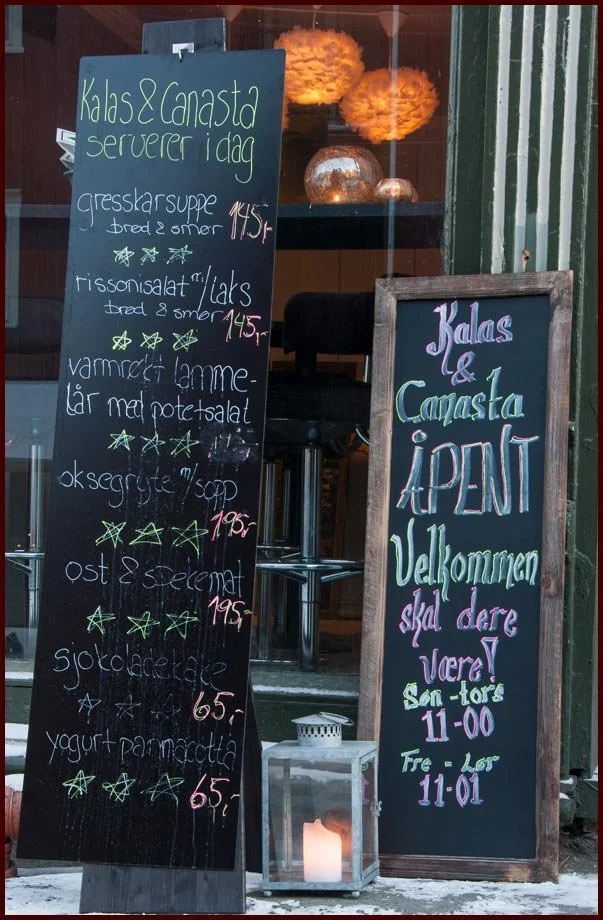 Kalas & Canasta
serverer i dag
gresskarsuppe
brød & smør 145,-
rissonisalat m/laks
brød & smør 145,-
varmrøkt lamme-
lår med potetsalat
oksegryte m/sopp
195,-
ost & spekemat
195,-
sjokoladekake
65,-
yogurt pannacotta
65,-
Kalas
&
Canasta
ÅPENT
Velkommen
skal dere
være!
Søn - tors
11-00
Fre - Lør
11-01